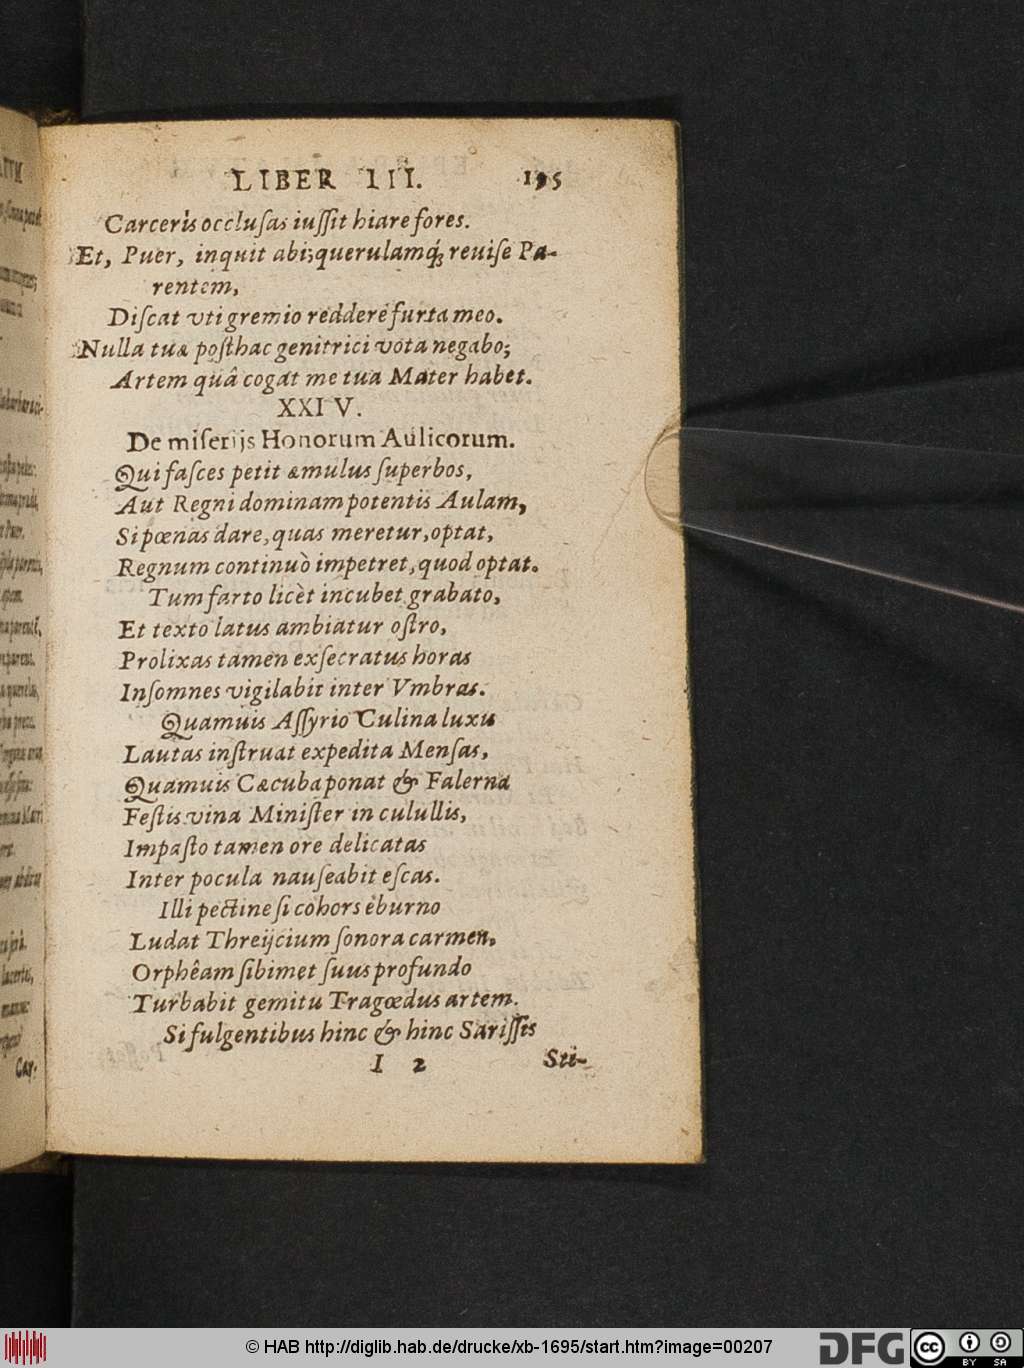 LIBER III. 195
Carceris occlusas iussit hiare fores.
Et, Puer, inquit abi; querulamq́; reuise Pa-
rentem,
Discat vti gremio reddere furta meo.
Nulla tuæ posthac genitrici vota negabo;
Artem quâ cogat me tua Mater habet.
XXIV.
De miserijs Honorum Aulicorum.
Qui fasces petit æmulus superbos,
Aut Regni dominam potentis Aulam,
Si pœnas dare, quas meretur, optat,
Regnum continuò impetret, quod optat.
Tum farto licèt incubet grabato,
Et texto latus ambiatur ostro,
Prolixas tamen exsecratus horas
Insomnes vigilabit inter Vmbras.
Quamuis Assyrio Culina luxu
Lautas instruat expedita Mensas,
Quamuis Cæcuba ponat & Falerna
Festis vina Minister in culullis,
Impasto tamen ore delicatas
Inter pocula nauseabit escas.
Illi pectine si cohors eburno
Ludat Threijcium sonora carmen,
Orphêam sibimet suus profundo
Turbabit gemitu Tragœdus artem.
Si fulgentibus hinc & hinc Sarissis
I 2 Sti-
Car-
© HAB http://diglib.hab.de/drucke/xb-1695/start.htm?image=00207
DFG
cc
BY SA